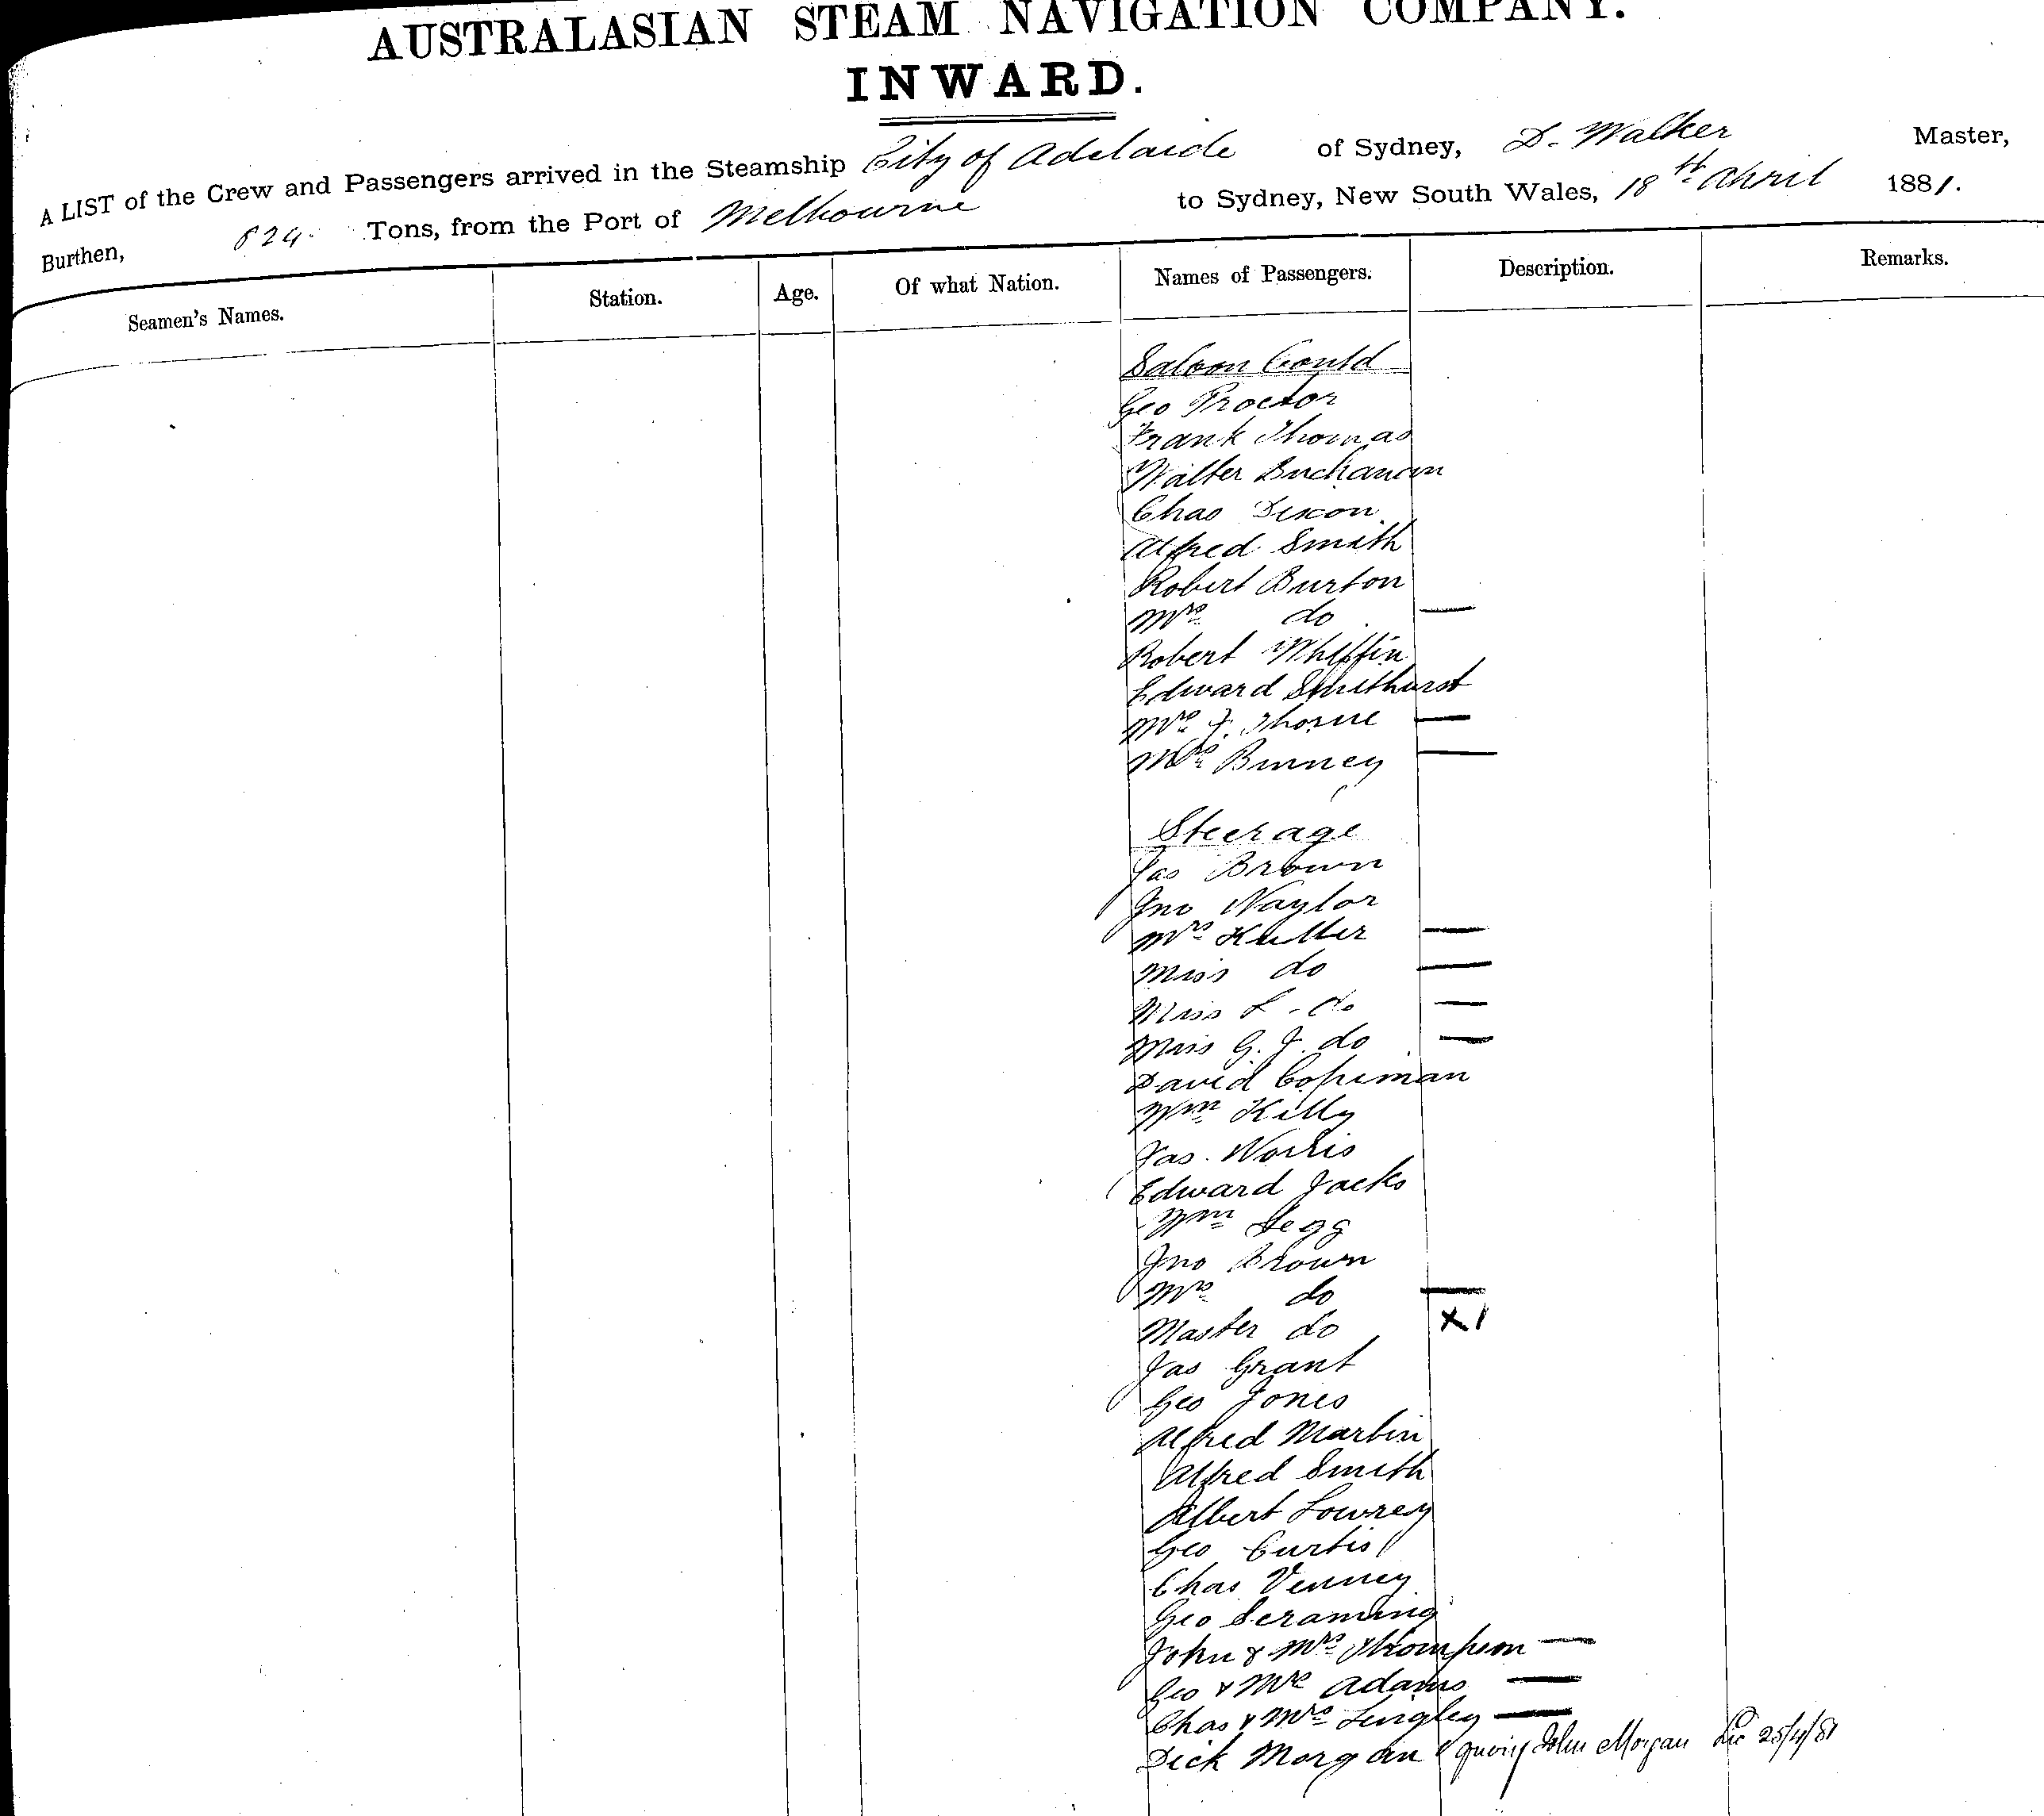 AUSTRALASIAN STEAM NAVIGATION COMPANY.
INWARD.
A LIST of the Crew and Passengers arrived in the Steamship City of Adelaide of Sydney, D. Walker Master,
Burthen, 824 Tons, from the Port of Melbourne to Sydney, New South Wales, 18th April 1881.
Seamen's Names. Station. Age. Of what Nation. Names of Passengers. Description. Remarks.
Saloon Contd
Geo Proctor
Frank Thomas
Walter Buchanan
Chas Dixon
Alfred Smith
Robert Burton
Mrs do —
Robert Whiffin
Edward Smithurst
Mrs F. Thorne —
Mrs Binney —
Steerage
Jas Brown
Jno Naylor
Mrs —
Miss do —
Miss L. do —
Miss G. J. do —
David Copeman
Wm Kelly
Jas. Norris
Edward Jacks
Wm Legg
Jno Brown
Mrs do —
Master do X1
Jas Grant
Geo Jones
Alfred Martin
Alfred Smith
Albert Lowrey
Geo Curtis
Chas Venney
Geo
John & Mrs Thompson —
Geo & Mrs Adams —
Chas & Mrs —
Dick Morgan John Morgan 25/4/81